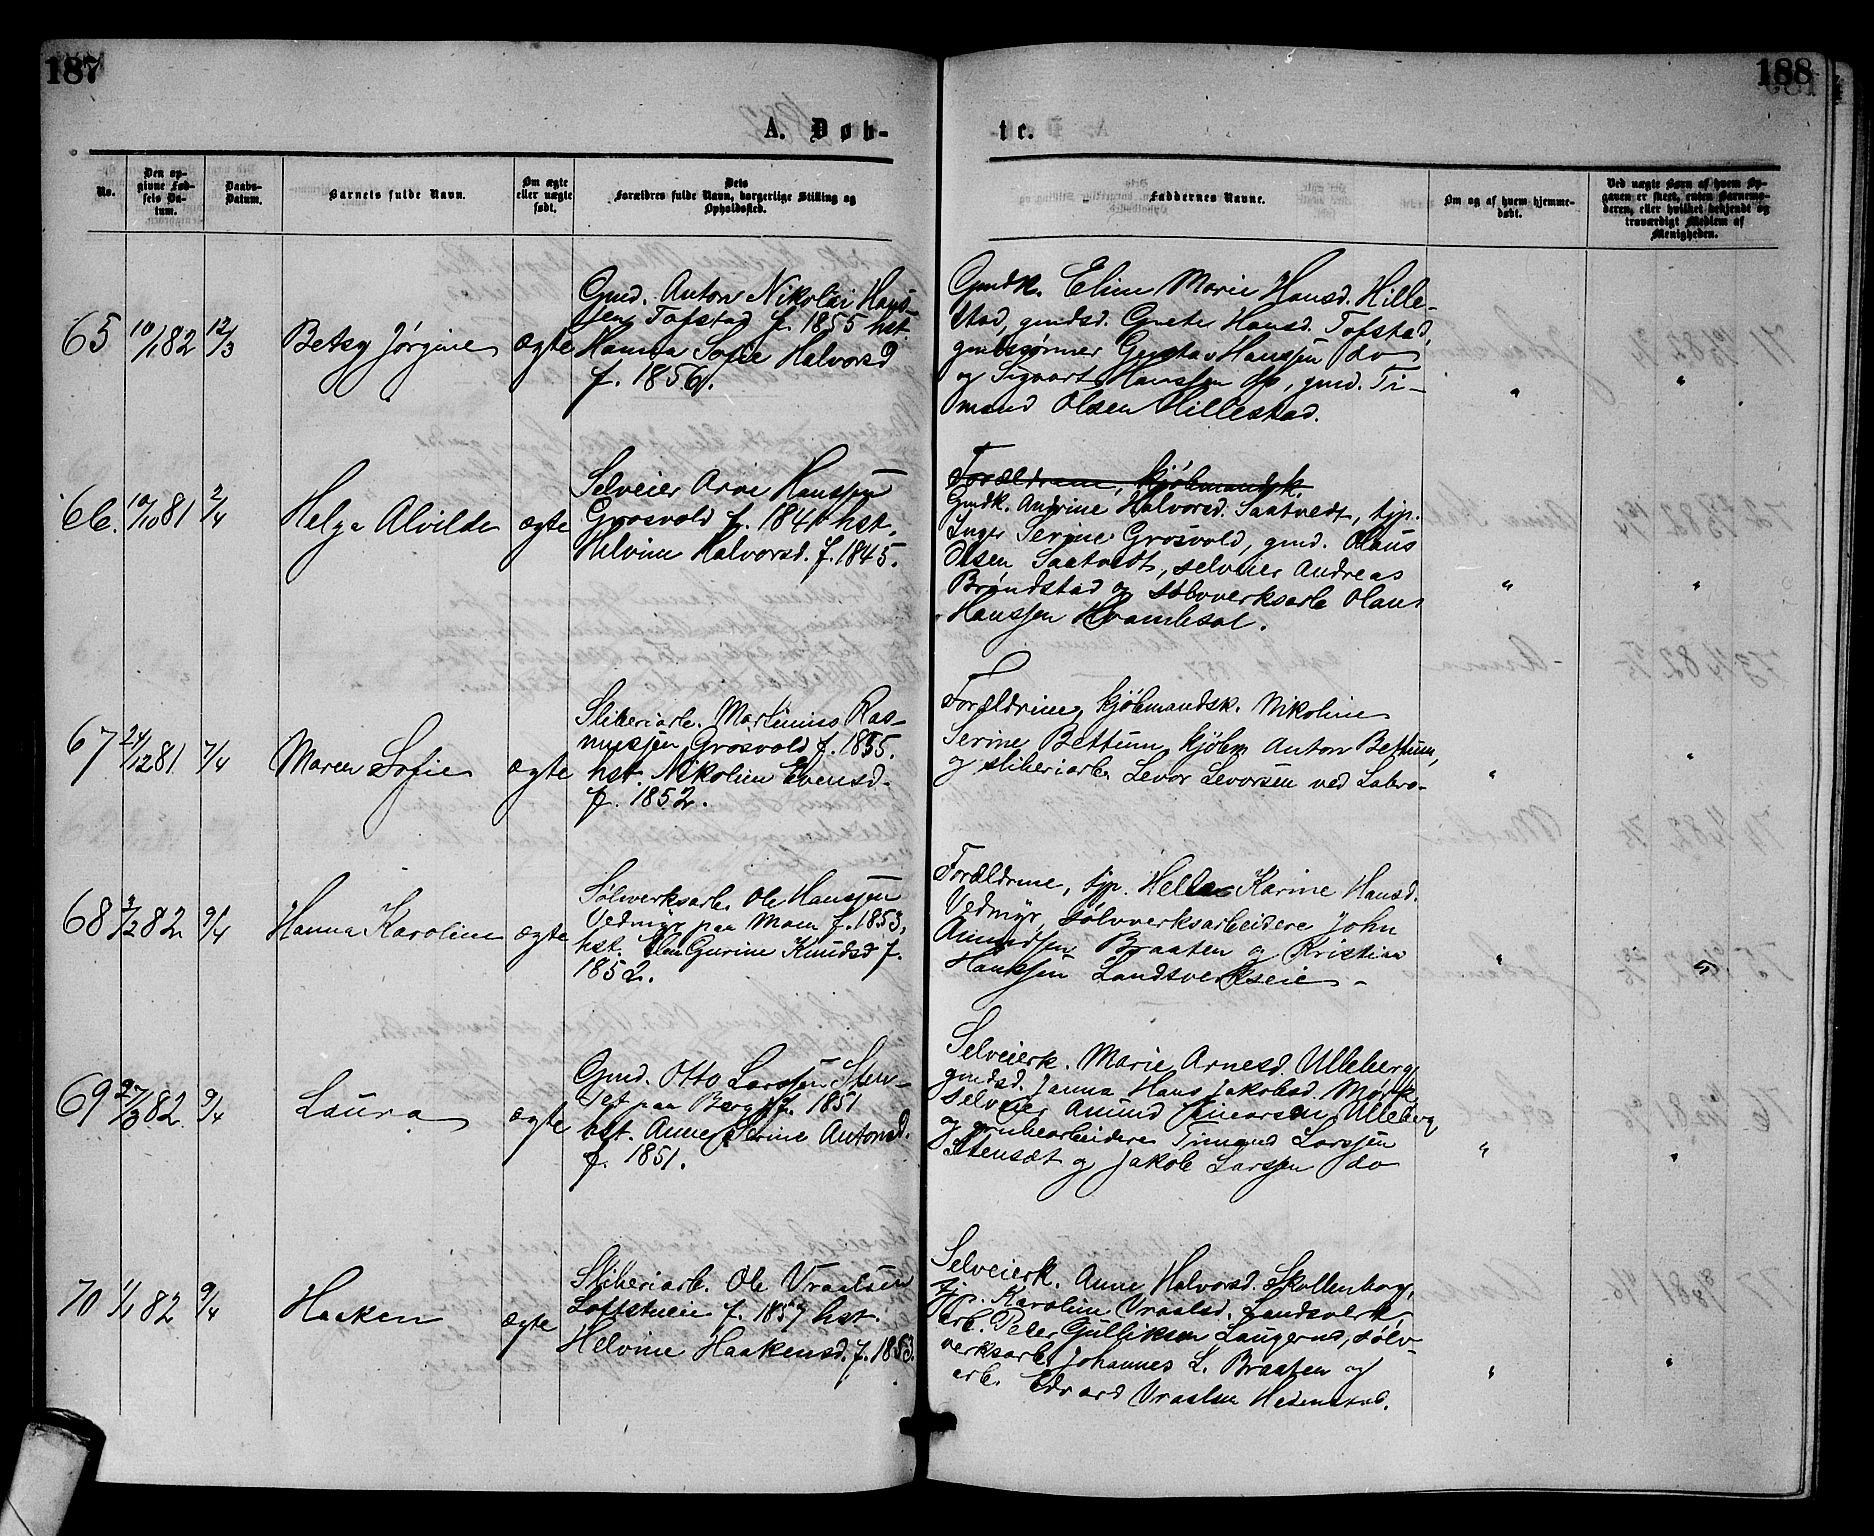 187
188
A. Døb-
te.
No.
Den op-
givne Fød-
sels Da-
tum.
Daabs-
Datum.
Barnets fulde Navn.
Om ægte
eller uægte
født.
Dets
Forældres fulde Navn, borgerlige Stilling og
Opholdssted.
Faddernes Navne.
Om og af hvem hjemme-
døbt.
Ved uægte Børn af hvem Op-
gaven er skeet, enten Barnemo-
deren, eller hvilket bekjendt og
troværdigt Medlem af
Menigheden.
65 10/1 82 12/3 Betsy Jørgine ægte
Gmd. Anton Nikolai Hans-
sen Tofstad f. 1855 hst.
Hanna Sofie Halvorsd
f. 1856.
Gmdk. Eline Marie Hansd. Hille-
stad, gmdsd. Grete Hansd. Tofstad,
gmdsønner Gustav Hanssen do
og Sigvart Hanssen do, gmd. Ti-
mand Olsen Hillestad.
" "
66. 10/10 81 2/4 Helga Alvilde ægte
Selveier Arve Hanssen
Grosvold f. 1840 hst.
Helvine Halvorsd. f. 1845.
Forældrene, kjøbmandsk.
Gmdk. Andrine Halvorsd. Saatvedt, tjp.
Inger Serine Grosvold, gmd. Olaus
Olsen Saatvedt, selveier Andreas
Brøndstad og sølvverksarb Olaus
Hanssen Kvambesal.
" "
67 24/12 81 7/4 Maren Sofie ægte
Sliberiarb. Martinius Ras-
mussen Grosvold f. 1855.
hst. Nikoline Evensd.
f. 1852.
Forældrene, kjøbmandsk. Nikoline
Serine Bettum, kjøbm Anton Bettum,
og sliberiarb. Levor Levorsen ved Labro-
" "
68 3/2 82 9/4 Hanna Karoline ægte
Sølvverksarb. Ole Hanssen
Vedmyr paa Moen f. 1853,
hst. Gurine Knudsd f.
1852.
Forældrene, tjp. Helle Karine Hansd.
Vedmyr, sølvverksarbeidere John
Amundsen Braaten og Kristian
Hanssen Landsverkseie -
" "
69 27/3 82 9/4 Laura ægte
Gmd. Otto Larssen Sten-
set paa Berg f. 1851
hst. Anne Serine Antonsd.
f. 1851.
Selveierk. Marie Arnesd. Ulleberg,
gmdsd. Janna Hans Jakobsd. Mørk,
selveier Amund Einarsen Ulleberg
og grubearbeidere Timand Larssen
Stensæt og Jakob Larssen do
" "
70 1/1 82 9/4 Haaken ægte
Sliberiarb. Ole Vraalsen
Loftstuen f. 1857 hst.
Helvine Haakensd. f. 1853.
Selveierk. Anne Halvorsd. Skollenborg,
tjp. Karoline Vraalsd. Landsverk,
arb. Peter Gulliksen Laugerud, sølv-
verksarb. Johannes L. Braaten og
arb. Edvard Vraalsen Hedenstad.
" "